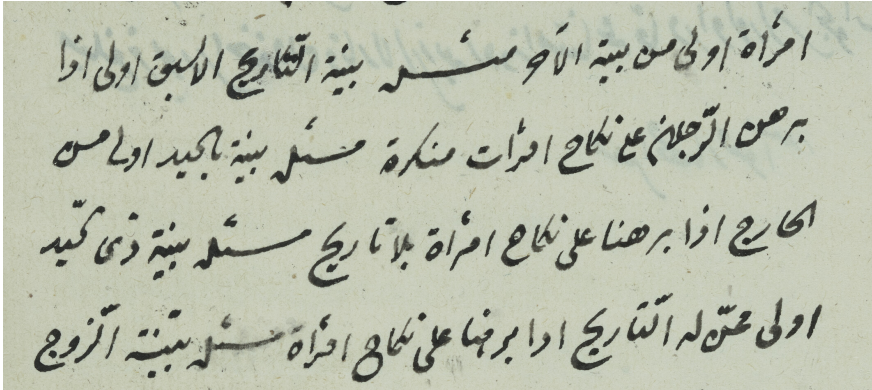 امرأة اولى من بينة الآخر مسئله بينة التّاريخ الاسبق اولى اذا
برهن الرّجلان على نكاح امرأت منكرة مسئله بينة باليد اولى من
الخارج اذا برهنا على نكاح امرأة بلا تاريخ مسئله بينة ذى اليد
اولى ممّن له التّاريخ اذا برهنا على نكاح امرأة مسئله بيّنة الزّوج